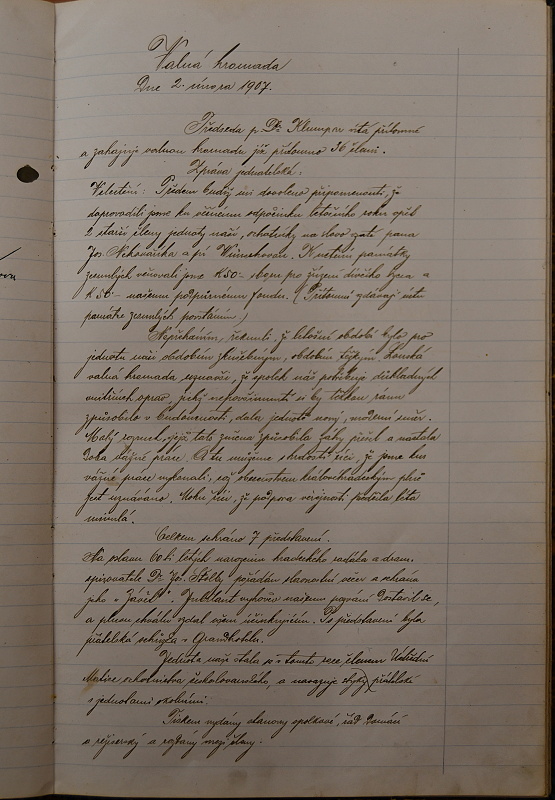 Valná hromada
Dne 2. února 1907.
Předseda p. Dr. Klumpar vítá přítomné
a zahajuje valnou hromadu již přítomno 36 členů.
Zpráva jednatelská:
Velectění! Předem budiž mi dovoleno připomenouti, že
doprovodili jsme ku věčnému odpočinku letošního roku opět
2 starší členy jednoty naší, ochotníky na slovo vzaté pana
Jos. Nekovařika a pí
K uctění památky
zesnulých věnovali jsme K 50·– pro zřízení dívčího lycea a
K 50·– našemu podpůrnému fondu. (Přítomní vzdávají úctu
památce zesnulých povstáním.)
Nepřeháním, řeknu-li, že letošní období bylo pro
jednotu naši obdobím zkušebným, obdobím těžkým. Loňská
valná hromada seznavši, že spolek náš potřebuje důkladných
vnitřních oprav, jichž nepovšimnutí si by těžkou ranu
způsobilo v budoucnosti, dala jednotě nový, moderní směr.
Malý rozruch, jejž tato změna způsobila záhy přešel a nastala
doba vážné práce. A tu můžeme s hrdostí říci, že jsme kus
vážné práce vykonali, což obecenstvem královéhradeckým plně
jest uznáváno. Mohu říci, že podpora veřejnosti předčila léta
minulá.
Celkem sehráno 7 představení.
Na oslavu 60ti letých narozenin hradeckého rodáka a dram.
spisovatele Dr. Jos. Štolby pořádán slavnostní večer a sehrána
jeho „Závěť". Jubilant vyhověv našemu pozvání dostavil se,
a plnou chválu vzdal všem účinkujícím. Po představení byla
přátelská schůzka v Grandhotelu.
Jednota naše stala se v tomto roce členem Ústřední
Matice ochotnictva českoslovanského, a navazuje styky přátelské
s jednotami okolními.
Tiskem vydány stanovy spolkové, řád domácí
a režisérský a rozdány mezi členy.